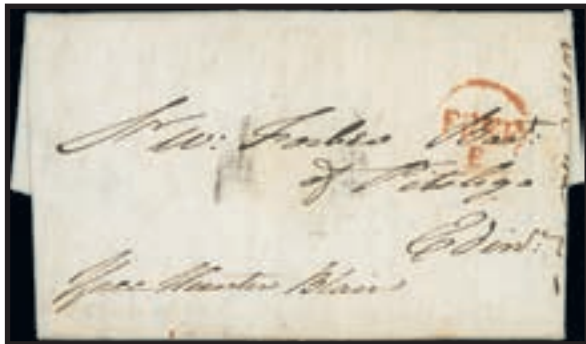 Sr Wm: Forbes Bart:
of Pitsligo
Edinr:
Jas: Hunter Blair